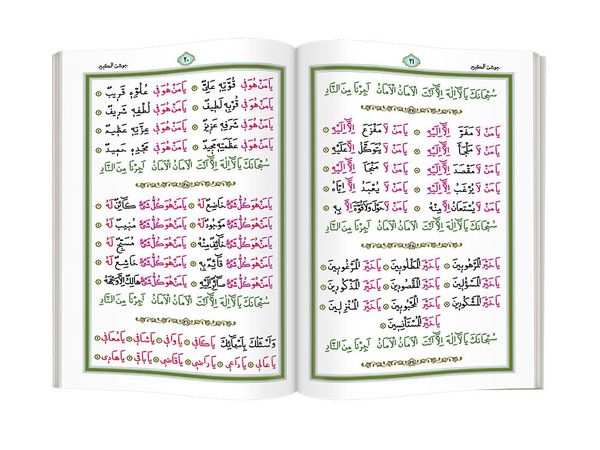 جوشن الكبير ٢٠
يَا مَنْ هُوَ فِي قُوَّتِهِ عَلِيٌّ يَا مَنْ هُوَ فِي عُلُوِّهِ قَرِيبٌ
يَا مَنْ هُوَ فِي قُرْبِهِ لَطِيفٌ يَا مَنْ هُوَ فِي لُطْفِهِ شَرِيفٌ
يَا مَنْ هُوَ فِي شَرَفِهِ عَزِيزٌ يَا مَنْ هُوَ فِي عِزَّتِهِ عَظِيمٌ
يَا مَنْ هُوَ فِي عَظَمَتِهِ مَجِيدٌ يَا مَنْ هُوَ فِي مَجْدِهِ حَمِيدٌ
سُبْحَانَكَ يَا لَا إِلٰهَ إِلَّا أَنْتَ الْأَمَانُ الْأَمَانُ أَجِرْنَا مِنَ النَّارِ
يَا مَنْ هُوَ كُلُّ شَيْءٍ خَاضِعٌ لَهُ يَا مَنْ هُوَ كُلُّ شَيْءٍ كَائِنٌ لَهُ
يَا مَنْ هُوَ كُلُّ شَيْءٍ مَوْجُودٌ لَهُ يَا مَنْ هُوَ كُلُّ شَيْءٍ مُنِيبٌ لَهُ
يَا مَنْ هُوَ كُلُّ شَيْءٍ خَائِفٌ مِنْهُ يَا مَنْ هُوَ كُلُّ شَيْءٍ مُسَبِّحٌ لَهُ
يَا مَنْ هُوَ كُلُّ شَيْءٍ قَائِمٌ بِهِ يَا مَنْ هُوَ كُلُّ شَيْءٍ خَاشِعٌ لَهُ
يَا مَنْ هُوَ كُلُّ شَيْءٍ صَائِرٌ إِلَيْهِ يَا مَنْ هُوَ كُلُّ شَيْءٍ هَالِكٌ إِلَّا وَجْهَهُ
سُبْحَانَكَ يَا لَا إِلٰهَ إِلَّا أَنْتَ الْأَمَانُ الْأَمَانُ أَجِرْنَا مِنَ النَّارِ
وَأَسْئَلُكَ بِأَسْمَائِكَ يَا كَافِي يَا وَافِي يَا شَافِي يَا مُعَافِي
يَا عَالِي يَا دَاعِي يَا رَاضِي يَا قَاضِي يَا بَاقِي يَا هَادِي
٢١ جوشن الكبير
سُبْحَانَكَ يَا لَا إِلٰهَ إِلَّا أَنْتَ الْأَمَانُ الْأَمَانُ أَجِرْنَا مِنَ النَّارِ
يَا مَنْ لَا مَفَرَّ إِلَّا إِلَيْهِ يَا مَنْ لَا مَفْزَعَ إِلَّا إِلَيْهِ
يَا مَنْ لَا مَلْجَأَ إِلَّا إِلَيْهِ يَا مَنْ لَا يُتَوَكَّلُ إِلَّا عَلَيْهِ
يَا مَنْ لَا مَقْصَدَ إِلَّا إِلَيْهِ يَا مَنْ لَا مَنْجَا إِلَّا إِلَيْهِ
يَا مَنْ لَا يُرْغَبُ إِلَّا إِلَيْهِ يَا مَنْ لَا يُعْبَدُ إِلَّا إِيَّاهُ
يَا مَنْ لَا يُسْتَعَانُ إِلَّا مِنْهُ يَا مَنْ لَا حَوْلَ وَلَا قُوَّةَ إِلَّا بِهِ
سُبْحَانَكَ يَا لَا إِلٰهَ إِلَّا أَنْتَ الْأَمَانُ الْأَمَانُ أَجِرْنَا مِنَ النَّارِ
يَا خَيْرَ الْمَرْهُوبِينَ يَا خَيْرَ الْمَطْلُوبِينَ يَا خَيْرَ الْمَرْغُوبِينَ
يَا خَيْرَ الْمَسْؤُلِينَ يَا خَيْرَ الْمَقْصُودِينَ يَا خَيْرَ الْمَذْكُورِينَ
يَا خَيْرَ الْمَشْكُورِينَ يَا خَيْرَ الْمَحْبُوبِينَ يَا خَيْرَ الْمُنْزِلِينَ
يَا خَيْرَ الْمُسْتَأْنِسِينَ
سُبْحَانَكَ يَا لَا إِلٰهَ إِلَّا أَنْتَ الْأَمَانُ الْأَمَانُ أَجِرْنَا مِنَ النَّارِ